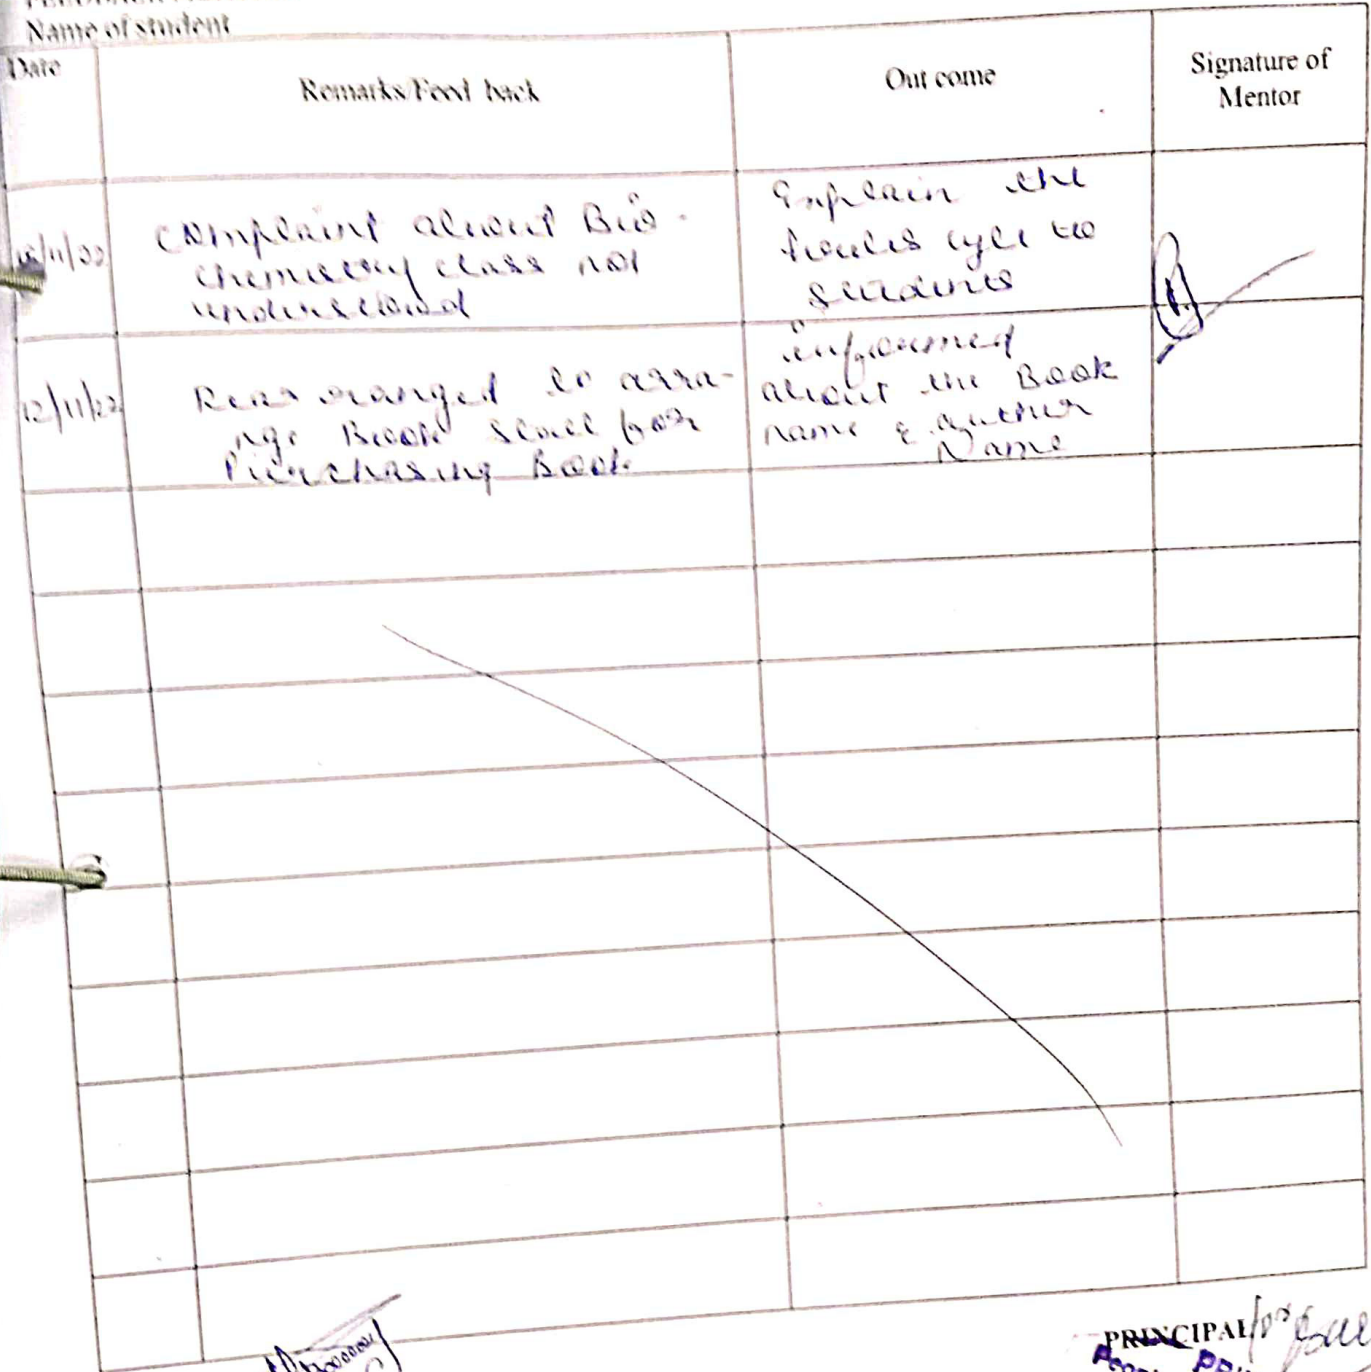 Name of student
Date
Remarks/Feed back
Out come
Signature of
Mentor
Complaint about Bio-
chemistry class not
understood
Explain the
cycle to
students
12/11/22
to arra-
nge Book stall for
Purchasing Book
informed
about the Book
name & author
Name
PRINCIPAL